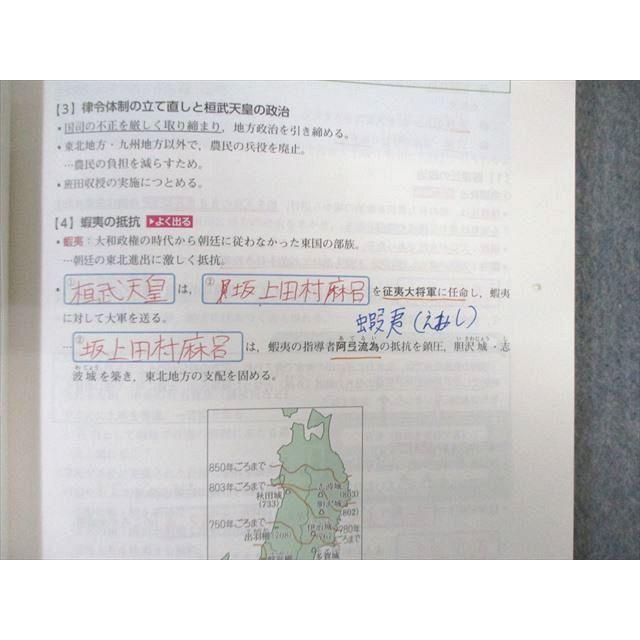 【3】律令体制の立て直しと桓武天皇の政治
・国司の不正を厳しく取り締まり，地方政治を引き締める。
・東北地方・九州地方以外で，農民の兵役を廃止。
…農民の負担を減らすため。
・班田収授の実施につとめる。
【4】蝦夷の抵抗 ▶よく出る
・蝦夷：大和政権の時代から朝廷に従わなかった東国の部族。
…朝廷の東北進出に激しく抵抗。
・① 桓武天皇 は，② 坂上田村麻呂 を征夷大将軍に任命し，蝦夷
に対して大軍を送る。
蝦夷(えみし)
…② 坂上田村麻呂 は，蝦夷の指導者阿弖流為の抵抗を鎮圧，胆沢城・志
あてるい いさわじょう し
波城を築き，東北地方の支配を固める。
わじょう
850年ごろまで
803年ごろまで
志波城
(803)
秋田城
(733)
胆沢城
(802)
750年ごろまで
伊治城
780年
ごろまで
出羽柵(708)
多賀城